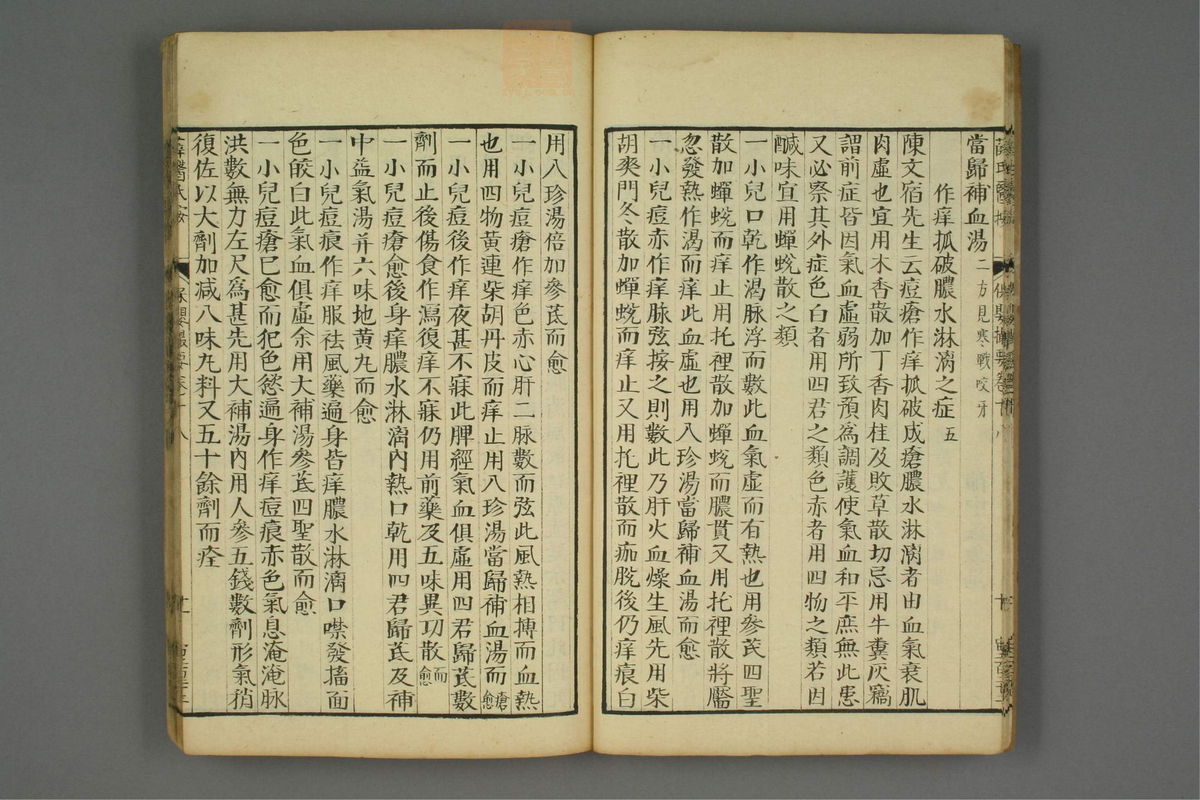 當歸補血湯二方見寒戰咬牙
作痒抓破膿水淋漓之症五
陳文宿先生云痘瘡作痒抓破成瘡膿水淋漓者由血氣衰肌
肉虛也宜用木香散加丁香肉桂及敗草散切忌用牛糞灰竊
謂前症皆因氣血虛弱所致預爲調護使氣血和平庶無此患
又必察其外症色白者用四君之類色赤者用四物之類若因
醎味宜用蟬蛻散之類
一小兒口乾作渴脉浮而數此血氣虛而有熱也用參芪四聖
散加蟬蛻而痒止用托裡散加蟬蛻而膿貫又用托裡散將靨
忽發熱作渴而痒此血虛也用八珍湯當歸補血湯而愈
一小兒痘赤作痒脉弦按之則數此乃肝火血燥生風先用柴
胡麥門冬散加蟬蛻而痒止又用托裡散而痂脫後仍痒痕白
用八珍湯倍加參芪而愈
一小兒痘瘡作痒色赤心肝二脉數而弦此風熱相搏而血熱
也用四物黄連柴胡丹皮而痒止用八珍湯當歸補血湯而瘡愈
一小兒痘後作痒夜甚不寐此脾經氣血俱虛用四君歸芪數
劑而止後傷食作瀉復痒不寐仍用前藥及五味異功散而愈
一小兒痘瘡愈後身痒膿水淋漓内熱口乾用四君歸芪及補
中益氣湯并六味地黄丸而愈
一小兒痘痕作痒服祛風藥遍身皆痒膿水淋漓口噤發搐面
色皎白此氣血俱虛余用大補湯參芪四聖散而愈
一小兒痘瘡已愈而犯色慾遍身作痒痘痕赤色氣息淹淹脉
洪數無力左尺爲甚先用大補湯内用人參五錢數劑形氣稍
復佐以大劑加减八味丸料又五十餘劑而痊